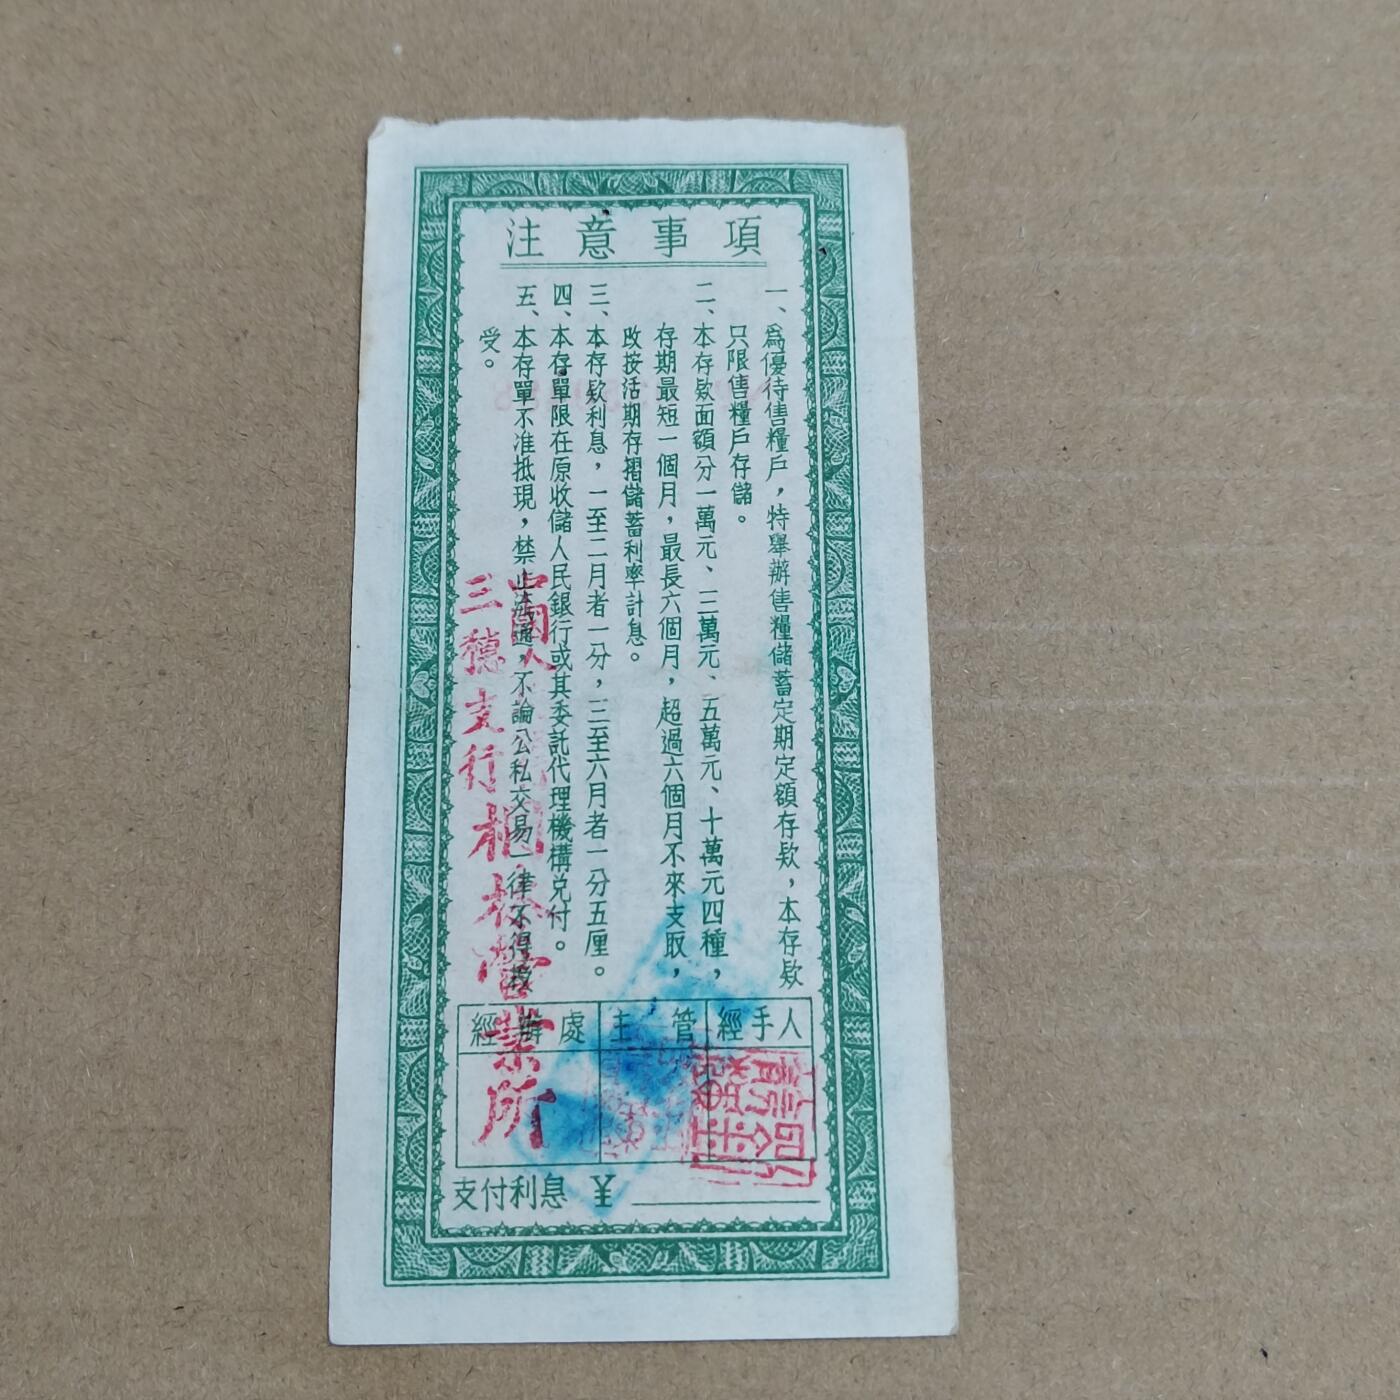 注意事項
一、爲優待售糧戶，特舉辦售糧儲蓄定期定額存欵，本存欵
只限售糧戶存儲。
二、本存欵面額分一萬元、三萬元、五萬元、十萬元四種，
存期最短一個月，最長六個月，超過六個月不來支取，
改按活期存摺儲蓄利率計息。
三、本存欵利息，一至二月者一分，三至六月者一分五厘。
四、本存單限在原收儲人民銀行或其委託代理機構兌付。
五、本存單不准抵現，禁止流通，不論公私交易一律不得接
受。
中國人
三穗支行桐林營業所
經辦處 主管 經手人
支付利息 ¥